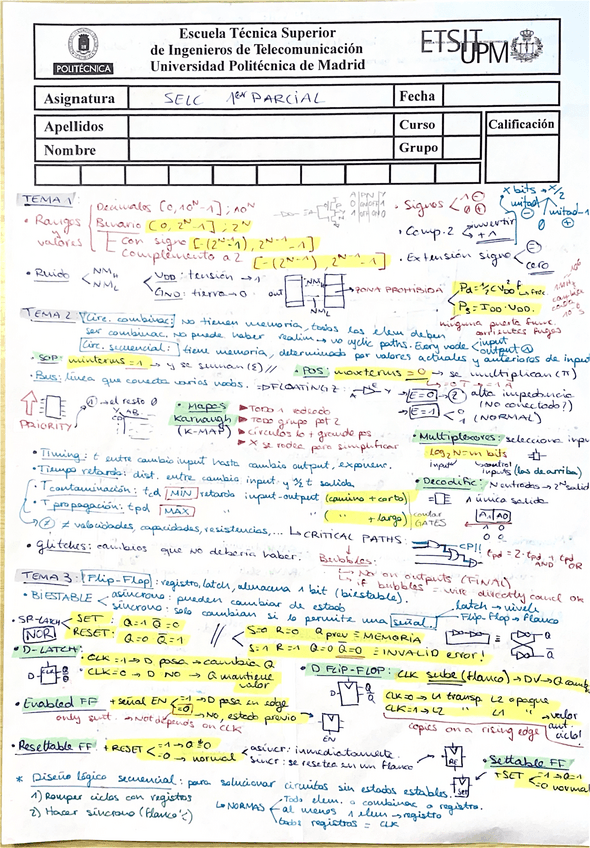 Escuela Técnica Superior
de Ingenieros de Telecomunicación
Universidad Politécnica de Madrid
POLITÉCNICA
ETSIT UPM
Asignatura SELC 1er PARCIAL Fecha
Apellidos Curso Calificación
Nombre Grupo
TEMA 1
• Rangos y valores
Decimales [0, 10^N - 1] ; 10^N
Binario [0, 2^N - 1] ; 2^N
con signo [-(2^N-1), 2^N-1 - 1]
Complemento a 2 [-(2^N-1), 2^N-1 - 1]
• Signos 1 ⊖ 0 ⊕
• Comp. 2 invertir + 1
• Extensión signo cero
x bits → x/2
mitad ⊖ 0 mitad-1 ⊕
• Ruido NMH NML
VDD: tensión → 1
GND: tierra → 0
out
ZONA PROHIBIDA
Pd = 1/2 C VDD² f
Ps = IDD · VDD
TEMA 2
Circ. combinac: no tienen memoria, todos los elem deben
ser combinac. no puede haber realim → no cyclic paths. Every node input output
Circ. secuencial: tiene memoria, determinado por valores actuales y anteriores de input
• SOP minterms = 1 → y se suman (Σ) // • POS maxterms = 0 → se multiplican (π)
• Bus: línea que conecta varios nodos. FLOATING Z:
E=0 → Z alta impedancia
(No conectado?)
E=1 0 1 (NORMAL)
PRIORITY
① → el resto 0
• Mapas Karnaugh (K-MAP)
▶ Todo 1 rodeado
▶ Todo grupo pot 2
▶ Círculos lo + grande pos
▶ X se rodea para simplificar
• Multiplexores: selecciona input
Log2 N = nº bits
input control inputs (los de arriba)
• Decodific: N entradas → 2^N salid
1 única salida
A1 A0
• Timing: t entre cambio input hasta cambio output, exponen.
• Tiempo retardo: dist. entre cambio input y ½ t salida
• T contaminación: tcd MIN retardo input-output (camino + corto)
• T propagación: tpd MAX " " ( " + largo)
contar GATES
≠ velocidades, capacidades, resistencias,... ↳ CRITICAL PATHS:
CP!!
tpd = 2· tpd AND + tpd OR
• Glitches: cambios que no debería haber.
Bubbles:
No on outputs (FINAL)
if bubbles = wire directly cancel
TEMA 3:
Flip-Flop: registro, latch, almacena 1 bit (biestable).
• BIESTABLE
asíncrono: pueden cambiar de estado
síncrono: solo cambian si lo permite una señal
latch → nivel
Flip-Flop → Flanco
• SR-Latch NOR
SET: Q=1 Q̄=0
RESET: Q=0 Q̄=1
// S=0 R=0 Q prev ≡ MEMORIA
S=1 R=1 Q=0 Q̄=0 ≡ INVALID error!
• D-LATCH:
CLK=1 → D pasa → cambia Q
CLK=0 → D NO → Q mantiene valor
• D FLIP-FLOP: CLK sube (flanco)
CLK=0 → L1 transp. L2 opaque
CLK=1 → L2 " L1 "
valor ant. ciclo!
copies on a rising edge
• Enabled FF + señal EN =1 → D pasa en edge
=0 → NO, estado previo
→ Not depends on CLK
EN
• Resettable FF + RESET =1 → Q=0
=0 → normal
asíncr: inmediatamente
síncr: se resetea en un Flanco
• Settable FF
+ SET =1 → Q=1
=0 normal
* Diseño lógico secuencial: para solucionar circuitos sin estados estables.
1) Romper ciclos con registros
2) Hacer síncrono (Flanco)
↳ NORMAS
Todo elem. o combinac o registro.
al menos 1 elem → registro
todos registros = CLK